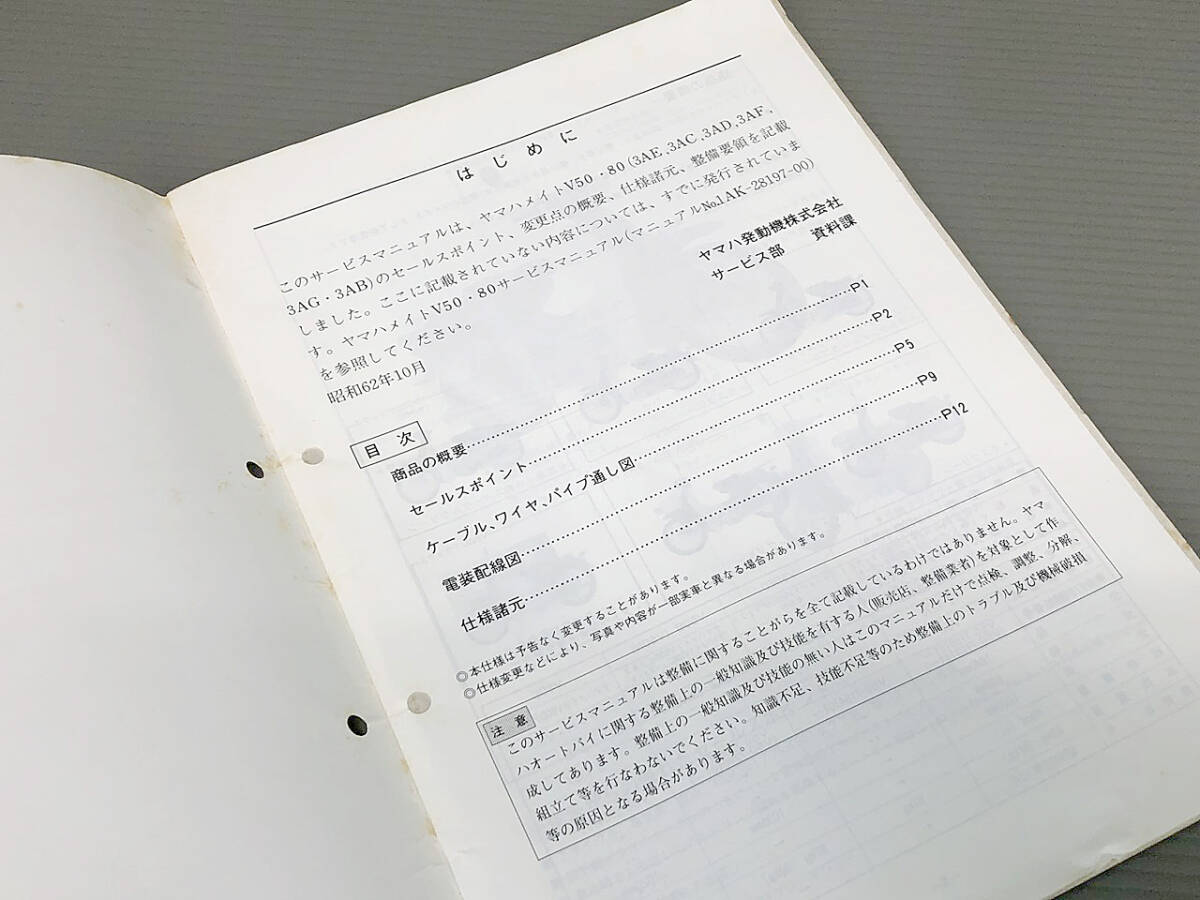 はじめに
このサービスマニュアルは、ヤマハメイトV50・80(3AE、3AC、3AD、3AF、
3AG・3AB)のセールスポイント、変更点の概要、仕様諸元、整備要領を記載
しました。ここに記載されていない内容については、すでに発行されていま
す。ヤマハメイトV50・80サービスマニュアル(マニュアルNo.1AK-28197-00)
を参照してください。
昭和62年10月
ヤマハ発動機株式会社
サービス部 資料課
目次
商品の概要…P1
セールスポイント…P2
ケーブル、ワイヤ、パイプ通し図…P5
電装配線図…P9
仕様諸元…P12
◎本仕様は予告なく変更することがあります。
◎仕様変更などにより、写真や内容が一部実車と異なる場合があります。
注意
このサービスマニュアルは整備に関することがらを全て記載しているわけではありません。ヤマ
ハオートバイに関する整備上の一般知識及び技能を有する人(販売店、整備業者)を対象として作
成してあります。整備上の一般知識及び技能の無い人はこのマニュアルだけで点検、調整、分解、
組立て等を行なわないでください。知識不足、技能不足等のため整備上のトラブル及び機械破損
等の原因となる場合があります。